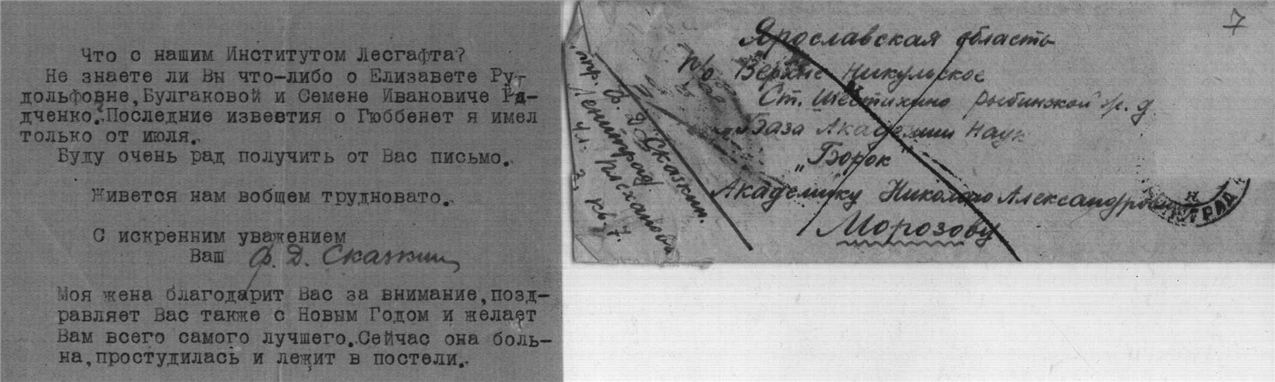 Что с нашим Институтом Лесгафта?
Не знаете ли Вы что-либо о Елизавете Ру-
дольфовне, Булгаковой и Семене Ивановиче Ра-
дченко. Последние известия о Гюббенет я имел
только от июля.
Буду очень рад получить от Вас письмо.
Живется нам вобщем трудновато.
С искренним уважением
Ваш Ф. Д. Сказкин
Моя жена благодарит Вас за внимание, позд-
равляет Вас также с Новым Годом и желает
Вам всего самого лучшего. Сейчас она боль-
на, простудилась и лежит в постели.
7
Ярославская область
п/о Верхне Никульское
Ст. Шестихино Рыбинской ж. д
База Академии Наук
"Борок"
Академику Николаю Александровичу
Морозову
пр. Ф. Д. Сказкин.
Ленинград
ул. Плеханова
2. кв 7
ГРАД